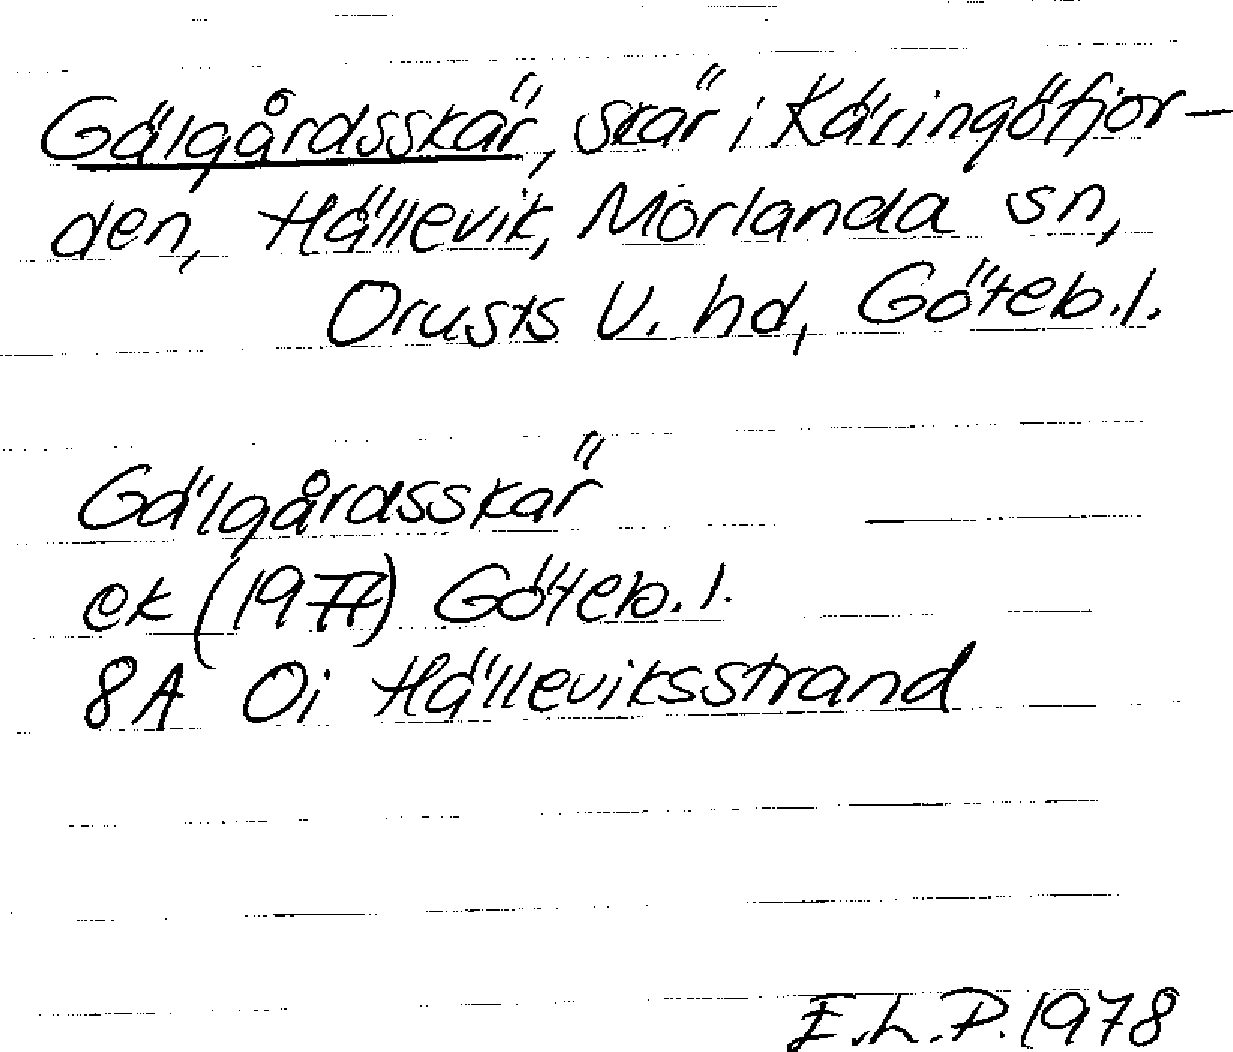 Gälgårdsskär, skär i Käringöfjor-
den, Hällevik, Morlanda sn,
Orusts V. hd, Göteb.l.
Gälgårdsskär
ek (1977) Göteb.l.
8A 0i Hälleviksstrand
E.L.P. 1978